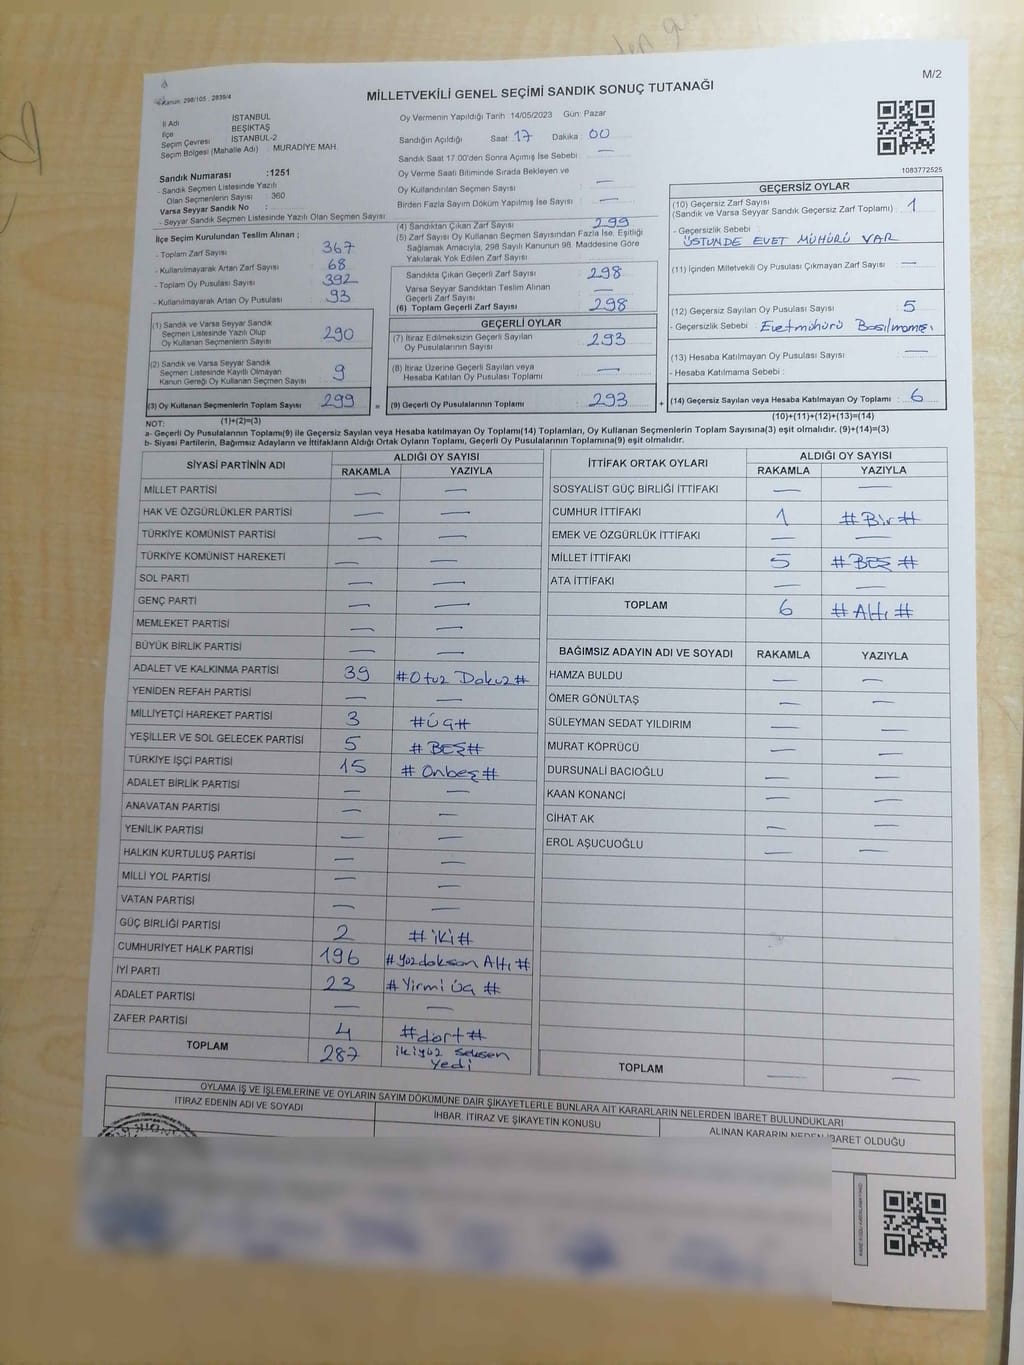 M/2
Kanun: 298/105 , 2839/4
MİLLETVEKİLİ GENEL SEÇİMİ SANDIK SONUÇ TUTANAĞI
İl Adı İSTANBUL
İlçe BEŞİKTAŞ
Seçim Çevresi İSTANBUL-2
Seçim Bölgesi (Mahalle Adı) : MURADİYE MAH.
Sandık Numarası :1251
- Sandık Seçmen Listesinde Yazılı
Olan Seçmenlerin Sayısı : 360
Varsa Seyyar Sandık No :
- Seyyar Sandık Seçmen Listesinde Yazılı Olan Seçmen Sayısı:
İlçe Seçim Kurulundan Teslim Alınan ;
- Toplam Zarf Sayısı 367
- Kullanılmayarak Artan Zarf Sayısı 68
- Toplam Oy Pusulası Sayısı 392
- Kullanılmayarak Artan Oy Pusulası 93
(1) Sandık ve Varsa Seyyar Sandık
Seçmen Listesinde Yazılı Olup
Oy Kullanan Seçmenlerin Sayısı 290
(2) Sandık ve Varsa Seyyar Sandık
Seçmen Listesinde Kayıtlı Olmayan
Kanun Gereği Oy Kullanan Seçmen Sayısı 9
(3) Oy Kullanan Seçmenlerin Toplam Sayısı 299 =
(1)+(2)=(3)
Oy Vermenin Yapıldığı Tarih :14/05/2023 Gün: Pazar
Sandığın Açıldığı Saat 17 Dakika 00
Sandık Saat 17:00'den Sonra Açımış İse Sebebi : —
Oy Verme Saati Bitiminde Sırada Bekleyen ve
Oy Kullandırılan Seçmen Sayısı —
Birden Fazla Sayım Döküm Yapılmış İse Sayısı —
(4) Sandıktan Çıkan Zarf Sayısı 299
(5) Zarf Sayısı Oy Kullanan Seçmen Sayısından Fazla İse, Eşitliği
Sağlamak Amacıyla, 298 Sayılı Kanunun 98. Maddesine Göre
Yakılarak Yok Edilen Zarf Sayısı
Sandıkta Çıkan Geçerli Zarf Sayısı 298
Varsa Seyyar Sandıktan Teslim Alınan
Geçerli Zarf Sayısı —
(6) Toplam Geçerli Zarf Sayısı 298
GEÇERLİ OYLAR
(7) İtiraz Edilmeksizin Geçerli Sayılan
Oy Pusulalarının Sayısı 293
(8) İtiraz Üzerine Geçerli Sayılan veya
Hesaba Katılan Oy Pusulası Toplamı —
(9) Geçerli Oy Pusulalarının Toplamı 293 +
1083772525
GEÇERSİZ OYLAR
(10) Geçersiz Zarf Sayısı 1
(Sandık ve Varsa Seyyar Sandık Geçersiz Zarf Toplamı) :
- Geçersizlik Sebebi
ÜSTÜNDE EVET MÜHÜRÜ VAR
(11) İçinden Milletvekili Oy Pusulası Çıkmayan Zarf Sayısı : —
(12) Geçersiz Sayılan Oy Pusulası Sayısı 5
- Geçersizlik Sebebi : Evetmühürü Basılmamış
(13) Hesaba Katılmayan Oy Pusulası Sayısı —
- Hesaba Katılmama Sebebi :
(14) Geçersiz Sayılan veya Hesaba Katılmayan Oy Toplamı : 6
(10)+(11)+(12)+(13)=(14)
NOT:
a- Geçerli Oy Pusulasının Toplamı(9) ile Geçersiz Sayılan veya Hesaba katılmayan Oy Toplamı(14) Toplamları, Oy Kullanan Seçmenlerin Toplam Sayısına(3) eşit olmalıdır. (9)+(14)=(3)
b- Siyasi Partilerin, Bağımsız Adayların ve İttifakların Aldığı Ortak Oyların Toplamı, Geçerli Oy Pusulalarının Toplamına(9) eşit olmalıdır.
SİYASİ PARTİNİN ADI ALDIĞI OY SAYISI
RAKAMLA YAZIYLA
MİLLET PARTİSİ — —
HAK VE ÖZGÜRLÜKLER PARTİSİ — —
TÜRKİYE KOMÜNİST PARTİSİ — —
TÜRKİYE KOMÜNİST HAREKETİ — —
SOL PARTİ — —
GENÇ PARTİ — —
MEMLEKET PARTİSİ — —
BÜYÜK BİRLİK PARTİSİ — —
ADALET VE KALKINMA PARTİSİ 39 #Otuz Dokuz#
YENİDEN REFAH PARTİSİ — —
MİLLİYETÇİ HAREKET PARTİSİ 3 #Üç#
YEŞİLLER VE SOL GELECEK PARTİSİ 5 #BEŞ#
TÜRKİYE İŞÇİ PARTİSİ 15 #Onbeş#
ADALET BİRLİK PARTİSİ — —
ANAVATAN PARTİSİ — —
YENİLİK PARTİSİ — —
HALKIN KURTULUŞ PARTİSİ — —
MİLLİ YOL PARTİSİ — —
VATAN PARTİSİ — —
GÜÇ BİRLİĞİ PARTİSİ 2 #iki#
CUMHURİYET HALK PARTİSİ 196 #Yüzdoksan Altı#
İYİ PARTİ 23 #Yirmi üç#
ADALET PARTİSİ — —
ZAFER PARTİSİ 4 #dört#
TOPLAM 287 ikiyüz seksen
Yedi
İTTİFAK ORTAK OYLARI ALDIĞI OY SAYISI
RAKAMLA YAZIYLA
SOSYALİST GÜÇ BİRLİĞİ İTTİFAKI — —
CUMHUR İTTİFAKI 1 #Bir#
EMEK VE ÖZGÜRLÜK İTTİFAKI — —
MİLLET İTTİFAKI 5 #BEŞ#
ATA İTTİFAKI — —
TOPLAM 6 #Altı#
BAĞIMSIZ ADAYIN ADI VE SOYADI RAKAMLA YAZIYLA
HAMZA BULDU — —
ÖMER GÖNÜLTAŞ — —
SÜLEYMAN SEDAT YILDIRIM — —
MURAT KÖPRÜCÜ — —
DURSUNALİ BACIOĞLU — —
KAAN KONANCİ — —
CİHAT AK — —
EROL AŞUCUOĞLU — —
TOPLAM — —
OYLAMA İŞ VE İŞLEMLERİNE VE OYLARIN SAYIM DÖKÜMÜNE DAİR ŞİKAYETLERLE BUNLARA AİT KARARLARIN NELERDEN İBARET BULUNDUKLARI
İTİRAZ EDENİN ADI VE SOYADI İHBAR, İTİRAZ VE ŞİKAYETİN KONUSU ALINAN KARARIN NEDEN İBARET OLDUĞU